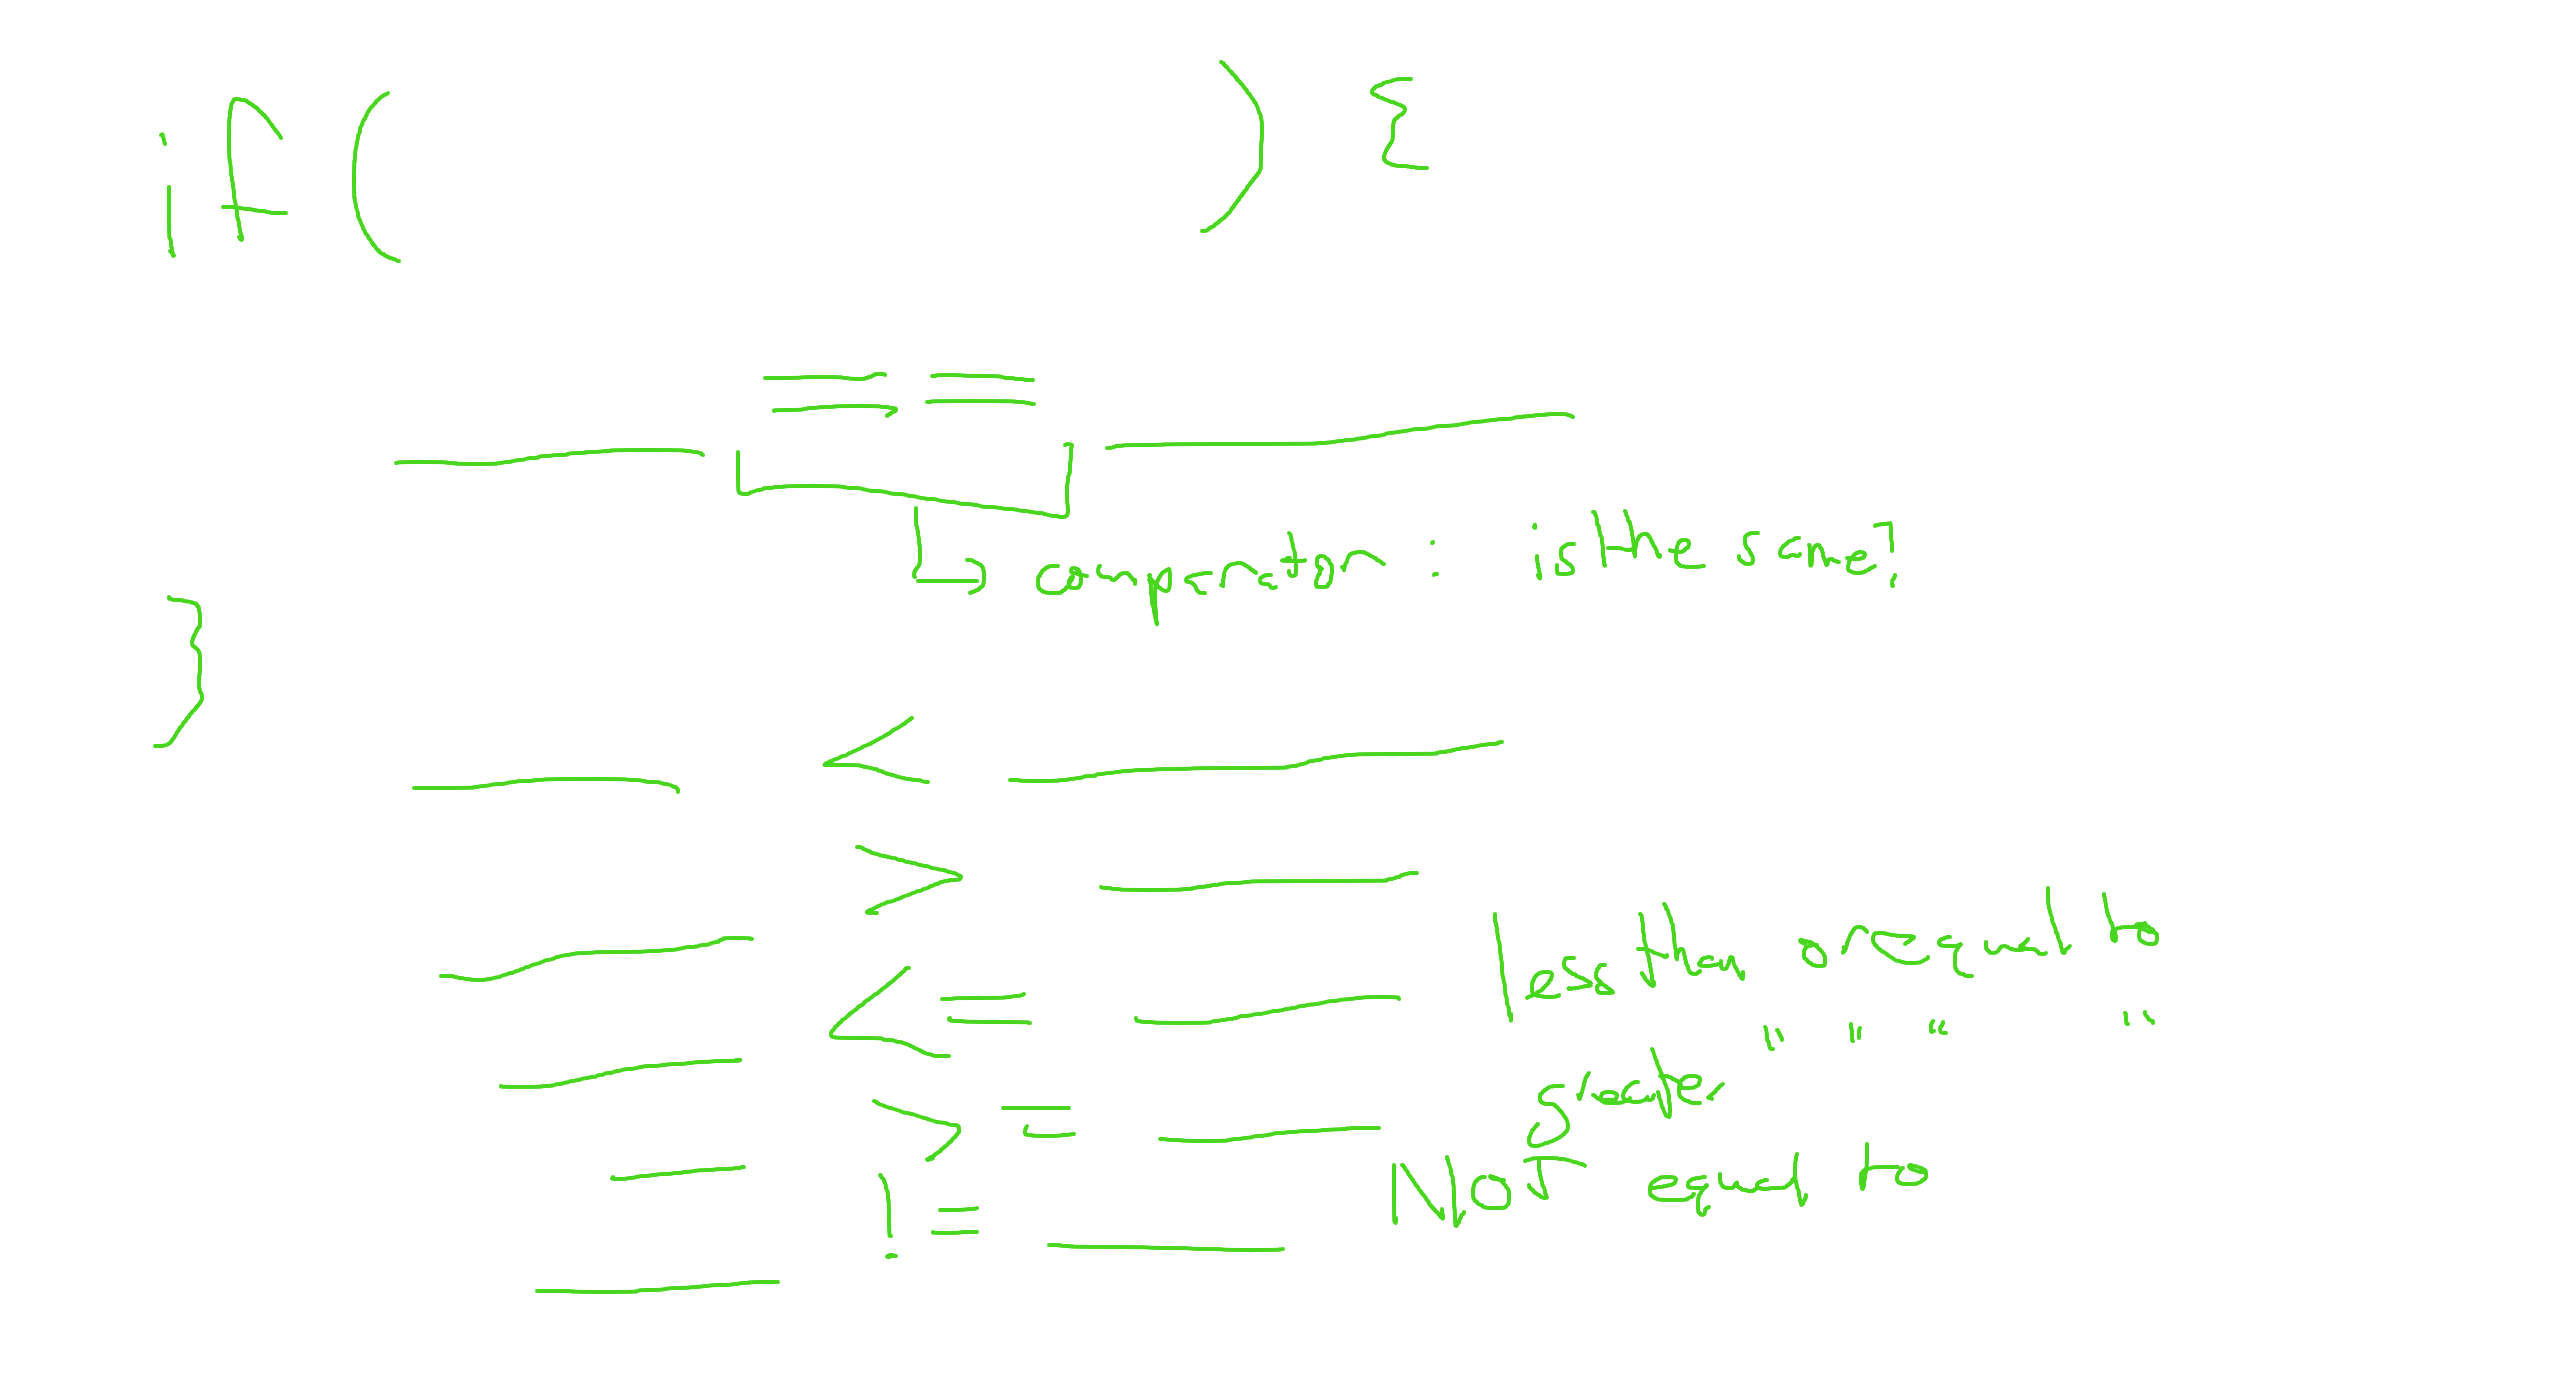 if ( ) {
==
comparator : is the same?
}
<
>
<= less than or equal to
>= greater " " " "
!= NOT equal to